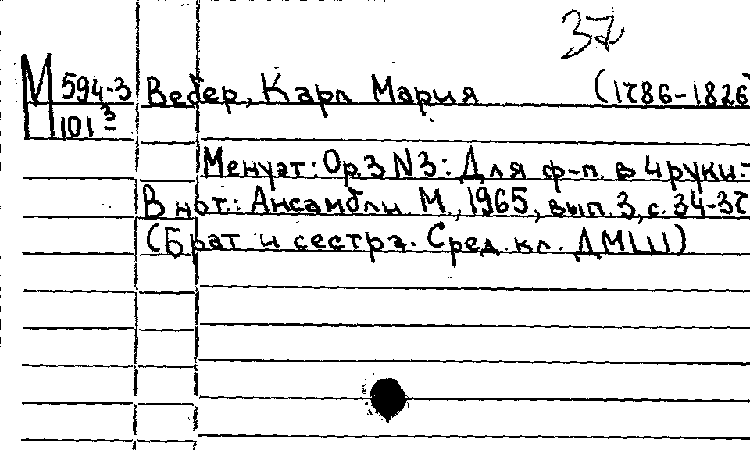 37
М 594-3 Вебер, Карл Мария (1786-1826
101 3
Менуэт: Ор.3 N3: Для ф-п. в 4 руки.-
В нот.: Ансамбли. М., 1965, вып. 3, с. 34-37
(Брат и сестра. Сред. кл. ДМШ)